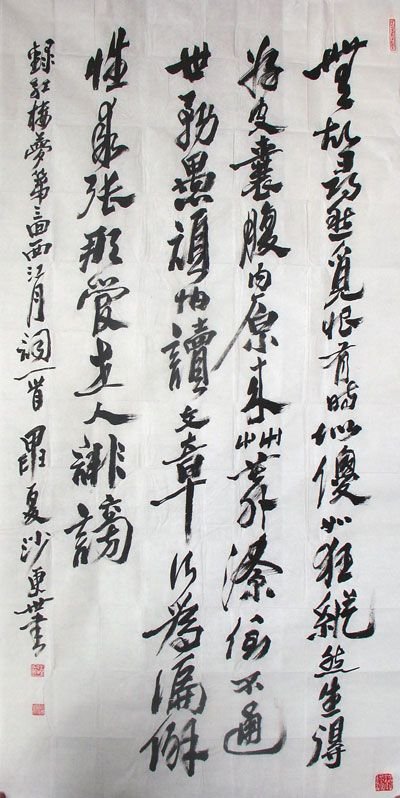 無故尋愁覓恨有時似傻如狂縱然生得
好皮囊腹内原來草莽潦倒不通
世務愚頑怕讀文章行為偏僻
性乖張那管世人誹謗
錄紅樓夢第三回西江月詞一首 夏沙更世書